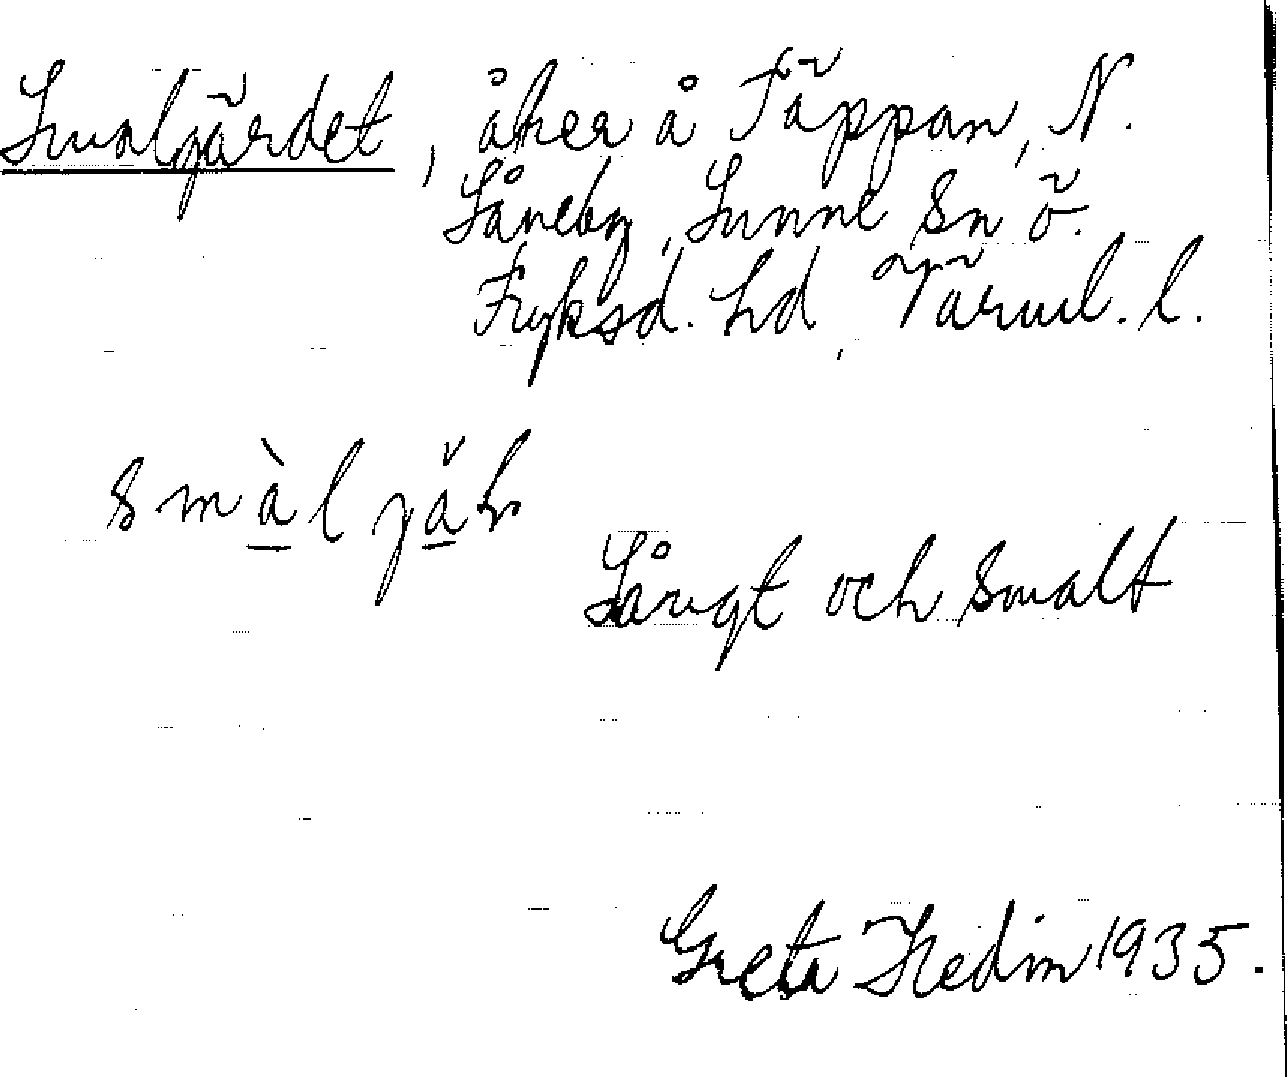 Smalgärdet, åker å Täppan, N.
Såneby, Sunne Sn Ö.
Fryksd. hd, Värml. l.
smàl jäk
Långt och smalt
Greta Hedin 1935.